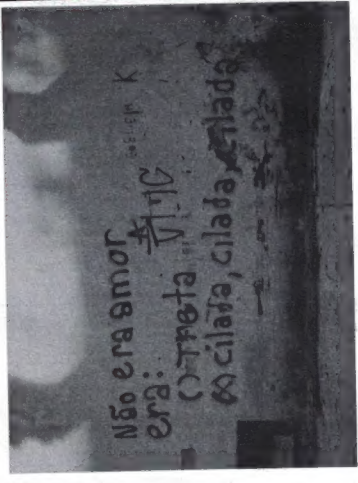 Não era amor
era:
() Treta
(x) cilada, cilada, cilada
K